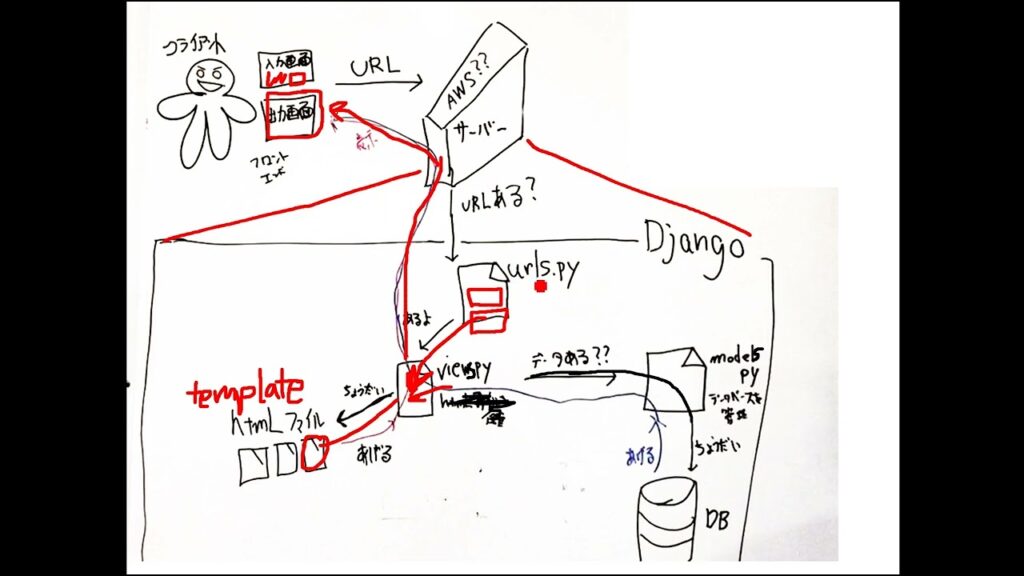 クライアント
入力画面
出力画面
フロント
エンド
URL
AWS??
サーバー
URLある?
Django
urls.py
あるよ
views.py
データある??
models
py
データベースを
管理
template
ちょうだい
htmlファイル
あげる
あげる
ちょうだい
DB